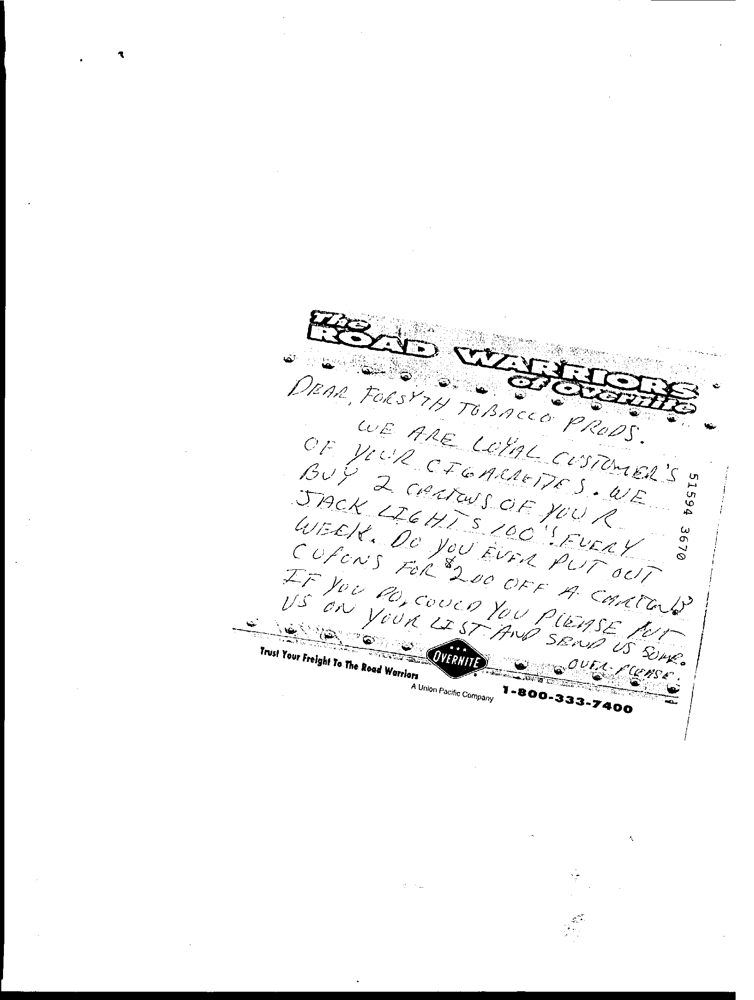 The
ROAD WARRIORS
of Overnite
DEAR, FORSYTH TOBACCO PRODS.
WE ARE LOYAL CUSTOMER'S
OF YOUR CIGARETTES. WE
BUY 2 CARTONS OF YOUR
JACK LIGHTS 100'S EVERY
WEEK. DO YOU EVER PUT OUT
CUPONS FOR $2.00 OFF A CARTON?
IF YOU DO, COULD YOU PLEASE PUT
US ON YOUR LIST AND SEND US SOME.
OVER-PLEASE.
OVERNITE
Trust Your Freight To The Road Warriors
A Union Pacific Company
1-800-333-7400
51594 3670